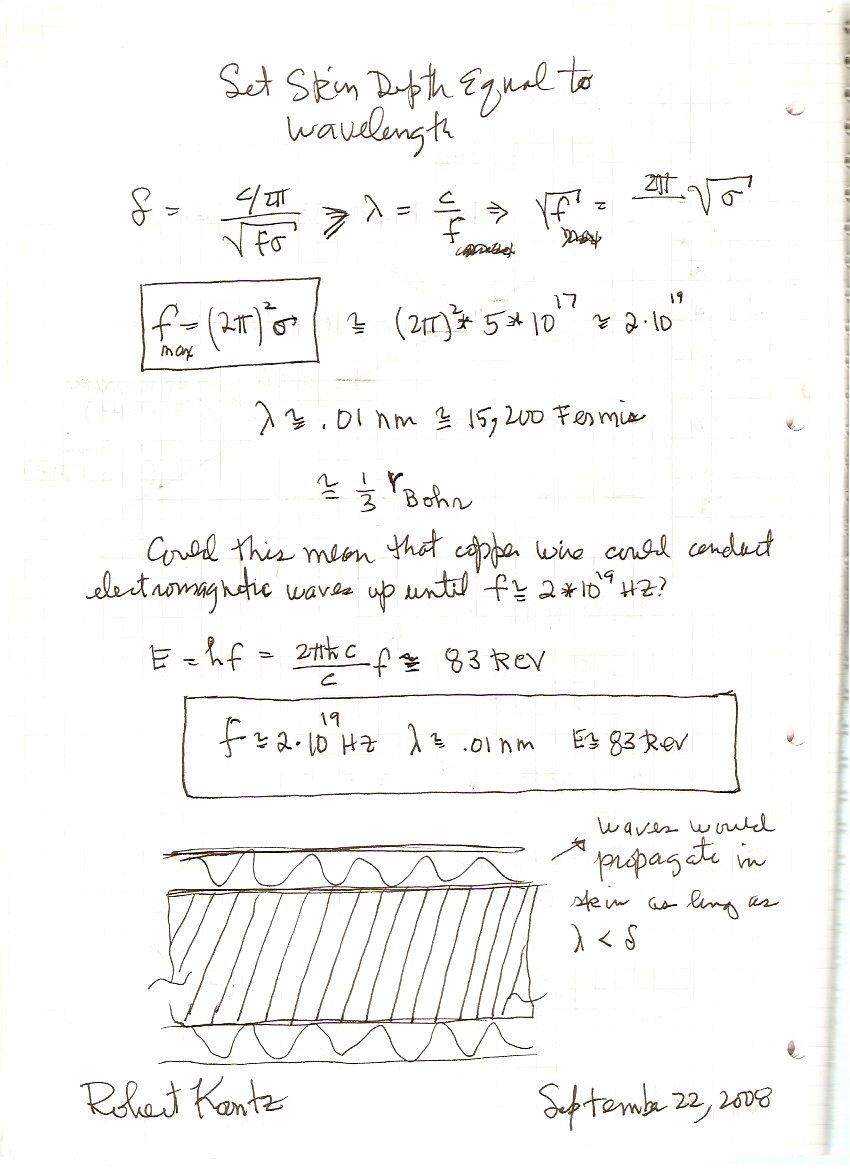 Set Skin Depth Equal to
Wavelength
δ = (c/2π)/√(fσ) ≥ λ = c/f ⇒ √f = 2π √σ
f max = (2π)² σ ≅ (2π)² * 5 * 10¹⁷ ≅ 2·10¹⁹
λ ≅ .01 nm ≅ 15,200 Fermis
≅ 1/3 r Bohr
Could this mean that copper wire could conduct
electromagnetic waves up until f ≅ 2*10¹⁹ HZ?
E = hf = (2πħc/c) f ≅ 83 KeV
f ≅ 2·10¹⁹ HZ λ ≅ .01 nm E ≅ 83 KeV
waves would
propagate in
skin as long as
λ < δ
Robert Kantz
September 22, 2008